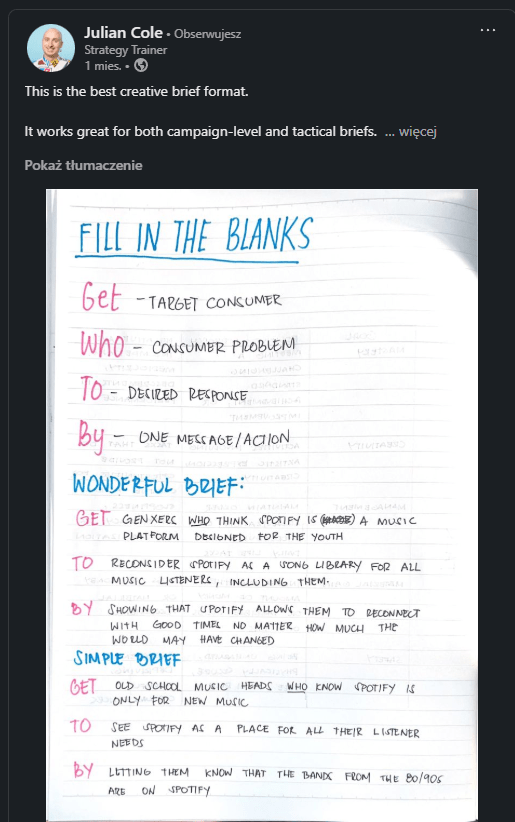 Julian Cole • Obserwujesz
Strategy Trainer
1 mies. •
This is the best creative brief format.
It works great for both campaign-level and tactical briefs. ... więcej
Pokaż tłumaczenie
FILL IN THE BLANKS
Get - TARGET CONSUMER
Who - CONSUMER PROBLEM
To - DESIRED RESPONSE
By - ONE MESSAGE/ACTION
WONDERFUL BRIEF:
GET GENXERS WHO THINK SPOTIFY IS A MUSIC
PLATFORM DESIGNED FOR THE YOUTH
TO RECONSIDER SPOTIFY AS A SONG LIBRARY FOR ALL
MUSIC LISTENERS, INCLUDING THEM.
BY SHOWING THAT SPOTIFY ALLOWS THEM TO RECONNECT
WITH GOOD TIMES NO MATTER HOW MUCH THE
WORLD MAY HAVE CHANGED
SIMPLE BRIEF
GET OLD SCHOOL MUSIC HEADS WHO KNOW SPOTIFY IS
ONLY FOR NEW MUSIC
TO SEE SPOTIFY AS A PLACE FOR ALL THEIR LISTENER
NEEDS
BY LETTING THEM KNOW THAT THE BANDS FROM THE 80/90S
ARE ON SPOTIFY